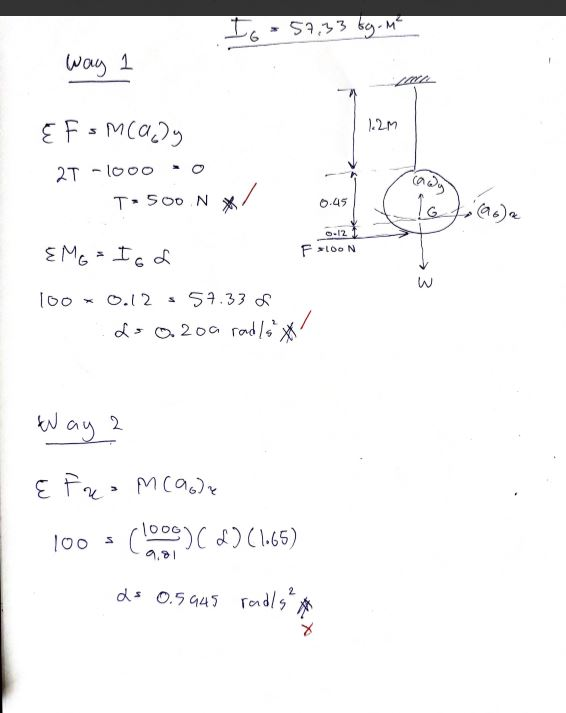 I_G = 57.33 kg-M²
Way 1
Σ F = M(a_G)y
2T - 1000 = 0
T = 500 N
Σ M_G = I_G α
100 × 0.12 = 57.33 α
α = 0.209 rad/s²
1.2M
0.45
0.12
F = 100 N
(a_G)y
G
(a_G)x
W
Way 2
Σ Fx = M(a_G)x
100 = (1000/9.81)(α)(1.65)
α = 0.5945 rad/s²